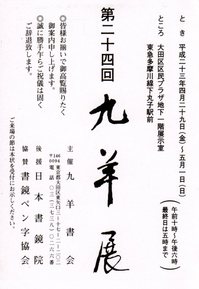 とき 平成二十三年四月二十九日(金)～五月一日(日)
(午前十時～午後六時
最終日は五時まで)
ところ 大田区区民プラザ地下一階展示室
東急多摩川線下丸子駅前
第二十四回
九羊展
◎皆様お揃いで御高覧賜りたく
御案内申し上げます。
◎誠に勝手乍らご祝儀は固く
ご辞退致します。
主催 九羊書会
〒146
0094 東京都大田区東矢口三ー七ー二ー二〇二
電話 〇三(三七三八)〇二六六番
後援 日本書鏡院
協賛 書鏡ペン字協会
ご来場の節は本状を受付にお示しください。